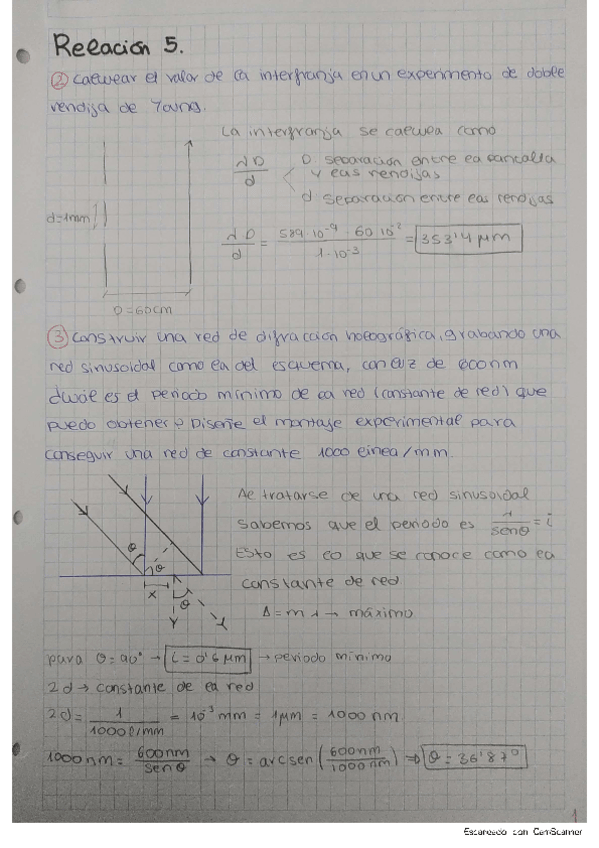 Relación 5.
② Calcular el valor de la interfranja en un experimento de doble
rendija de Young.
La interfranja se calcula como
λD/d
D separación entre la pantalla
y las rendijas
d separación entre las rendijas
d=1mm
λD/d = 589·10⁻⁹ · 60·10⁻² / 1·10⁻³ = 353'4 μm
D=60cm
③ Construir una red de difracción holográfica, grabando una
red sinusoidal como la del esquema, con luz de 600nm
¿Cuál es el periodo mínimo de la red (constante de red) que
puedo obtener? Diseñe el montaje experimental para
conseguir una red de constante 1000 línea/mm.
Al tratarse de una red sinusoidal
sabemos que el periodo es λ/senθ = i
Esto es lo que se conoce como la
constante de red
Δ = mλ → máximo
θ
θ
θ
x
para θ=90° → i = 0'6 μm → periodo mínimo
2d → constante de la red
2d = 1/1000l/mm = 10⁻³ mm = 1μm = 1000 nm
1000nm = 600nm/senθ → θ = arcsen(600nm/1000nm) ⇒ θ = 36'87°
1
Escaneado con CamScanner